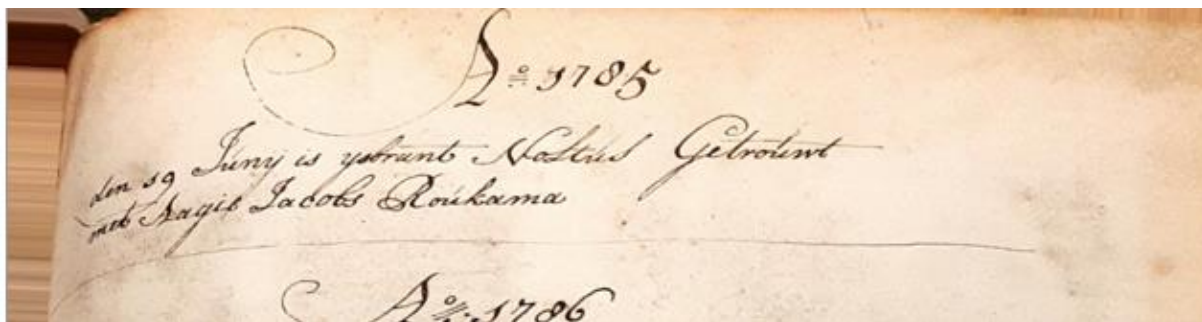 Aº 1785
den 19 Júnÿ is ysbrant Noltús Getroúwt
met Aagie Jacobs Roúkama
Aº 1786